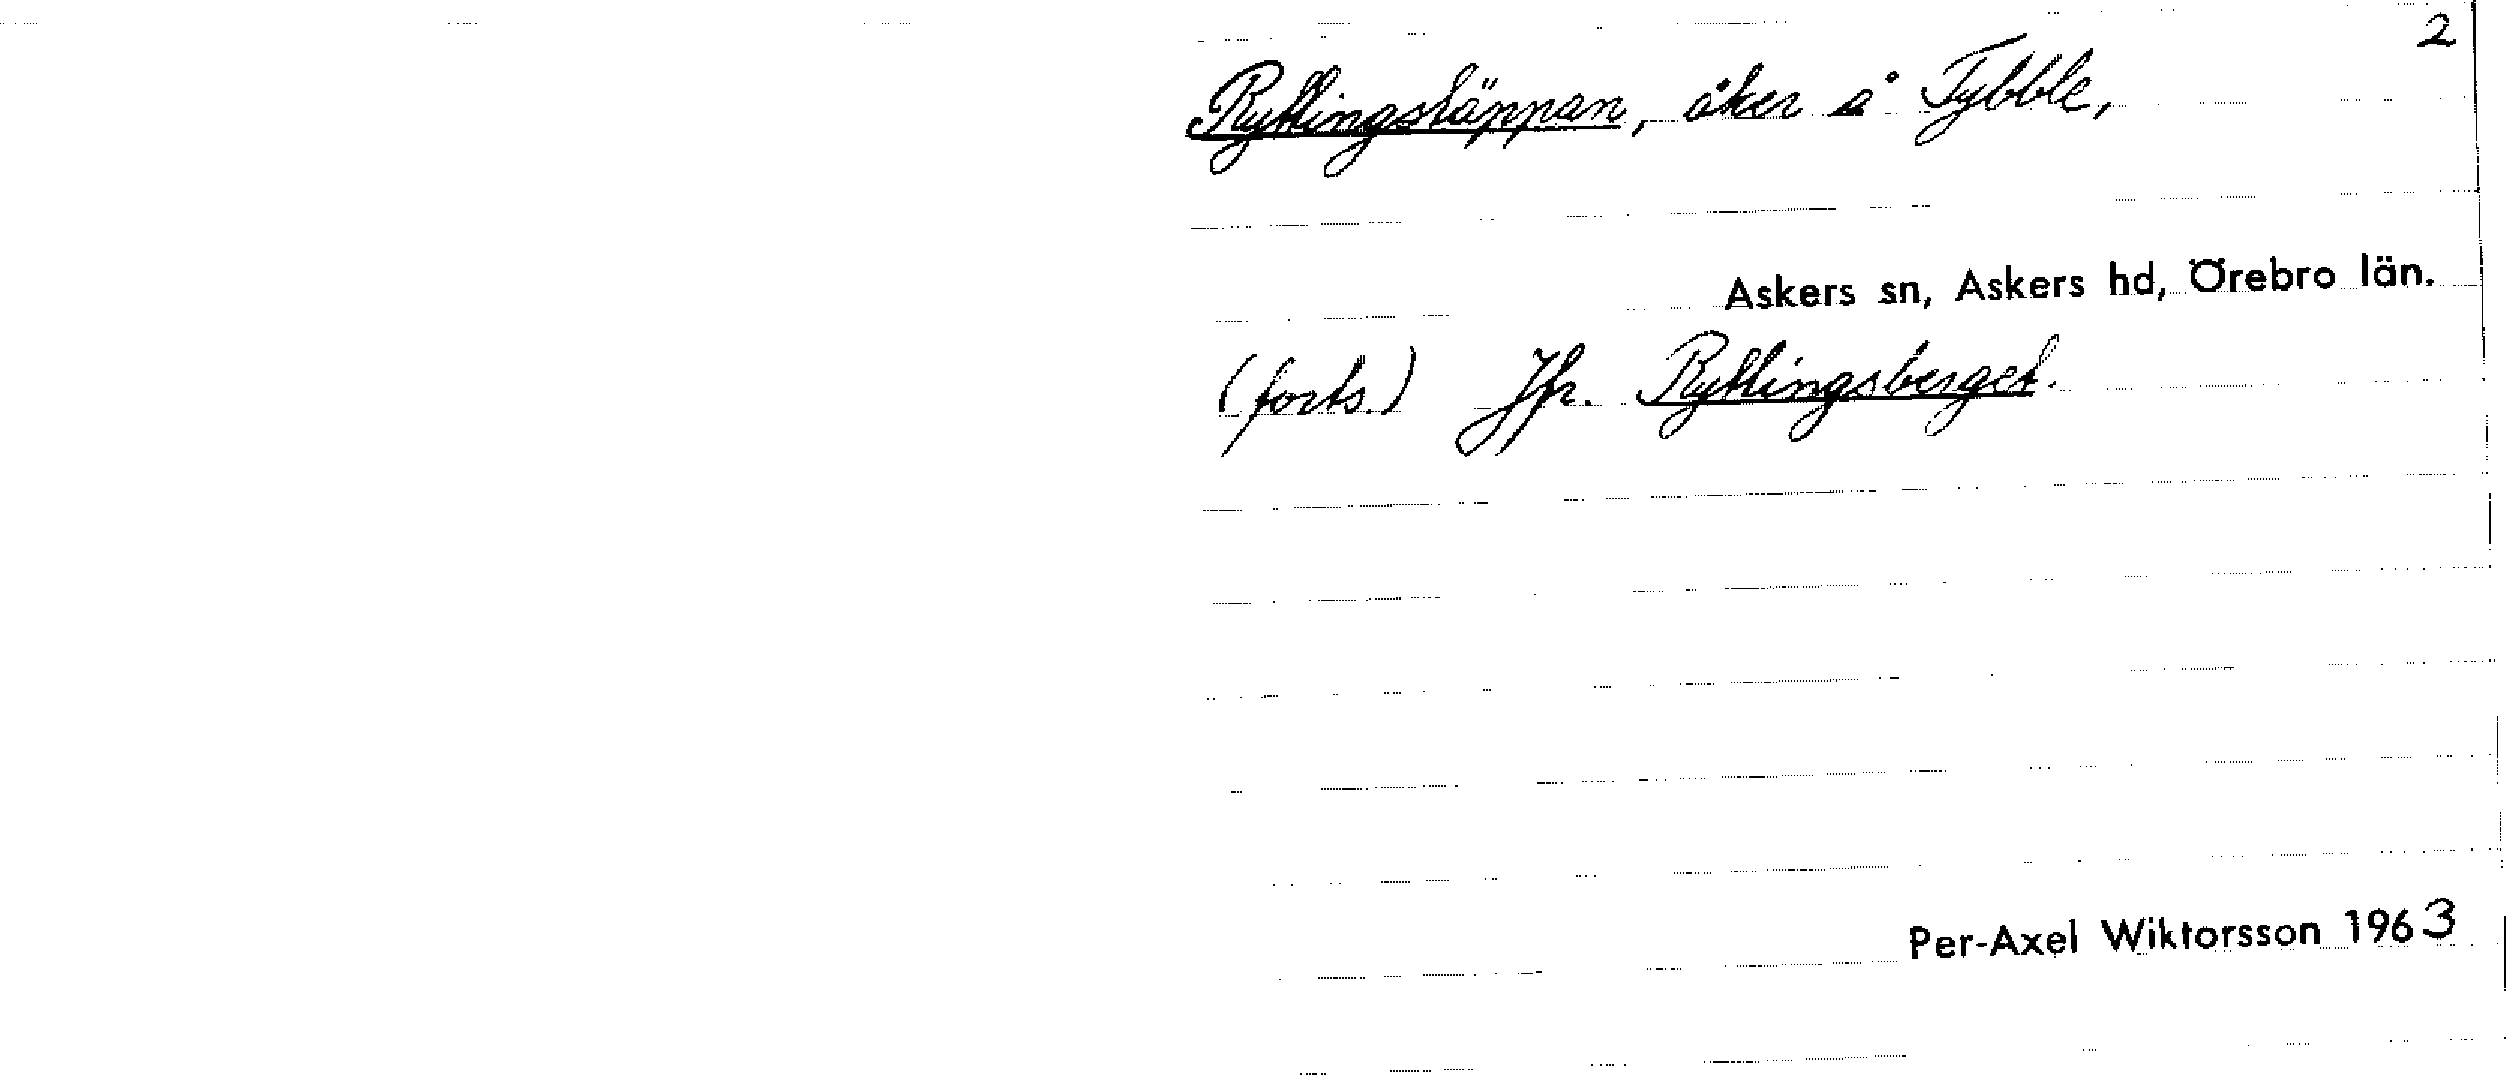 2
Ryttingstäppan, åker å Tybble,
Askers sn, Askers hd, Örebro län.
(forts.) Jfr. Ryttingsberget.
Per-Axel Wiktorsson 1963